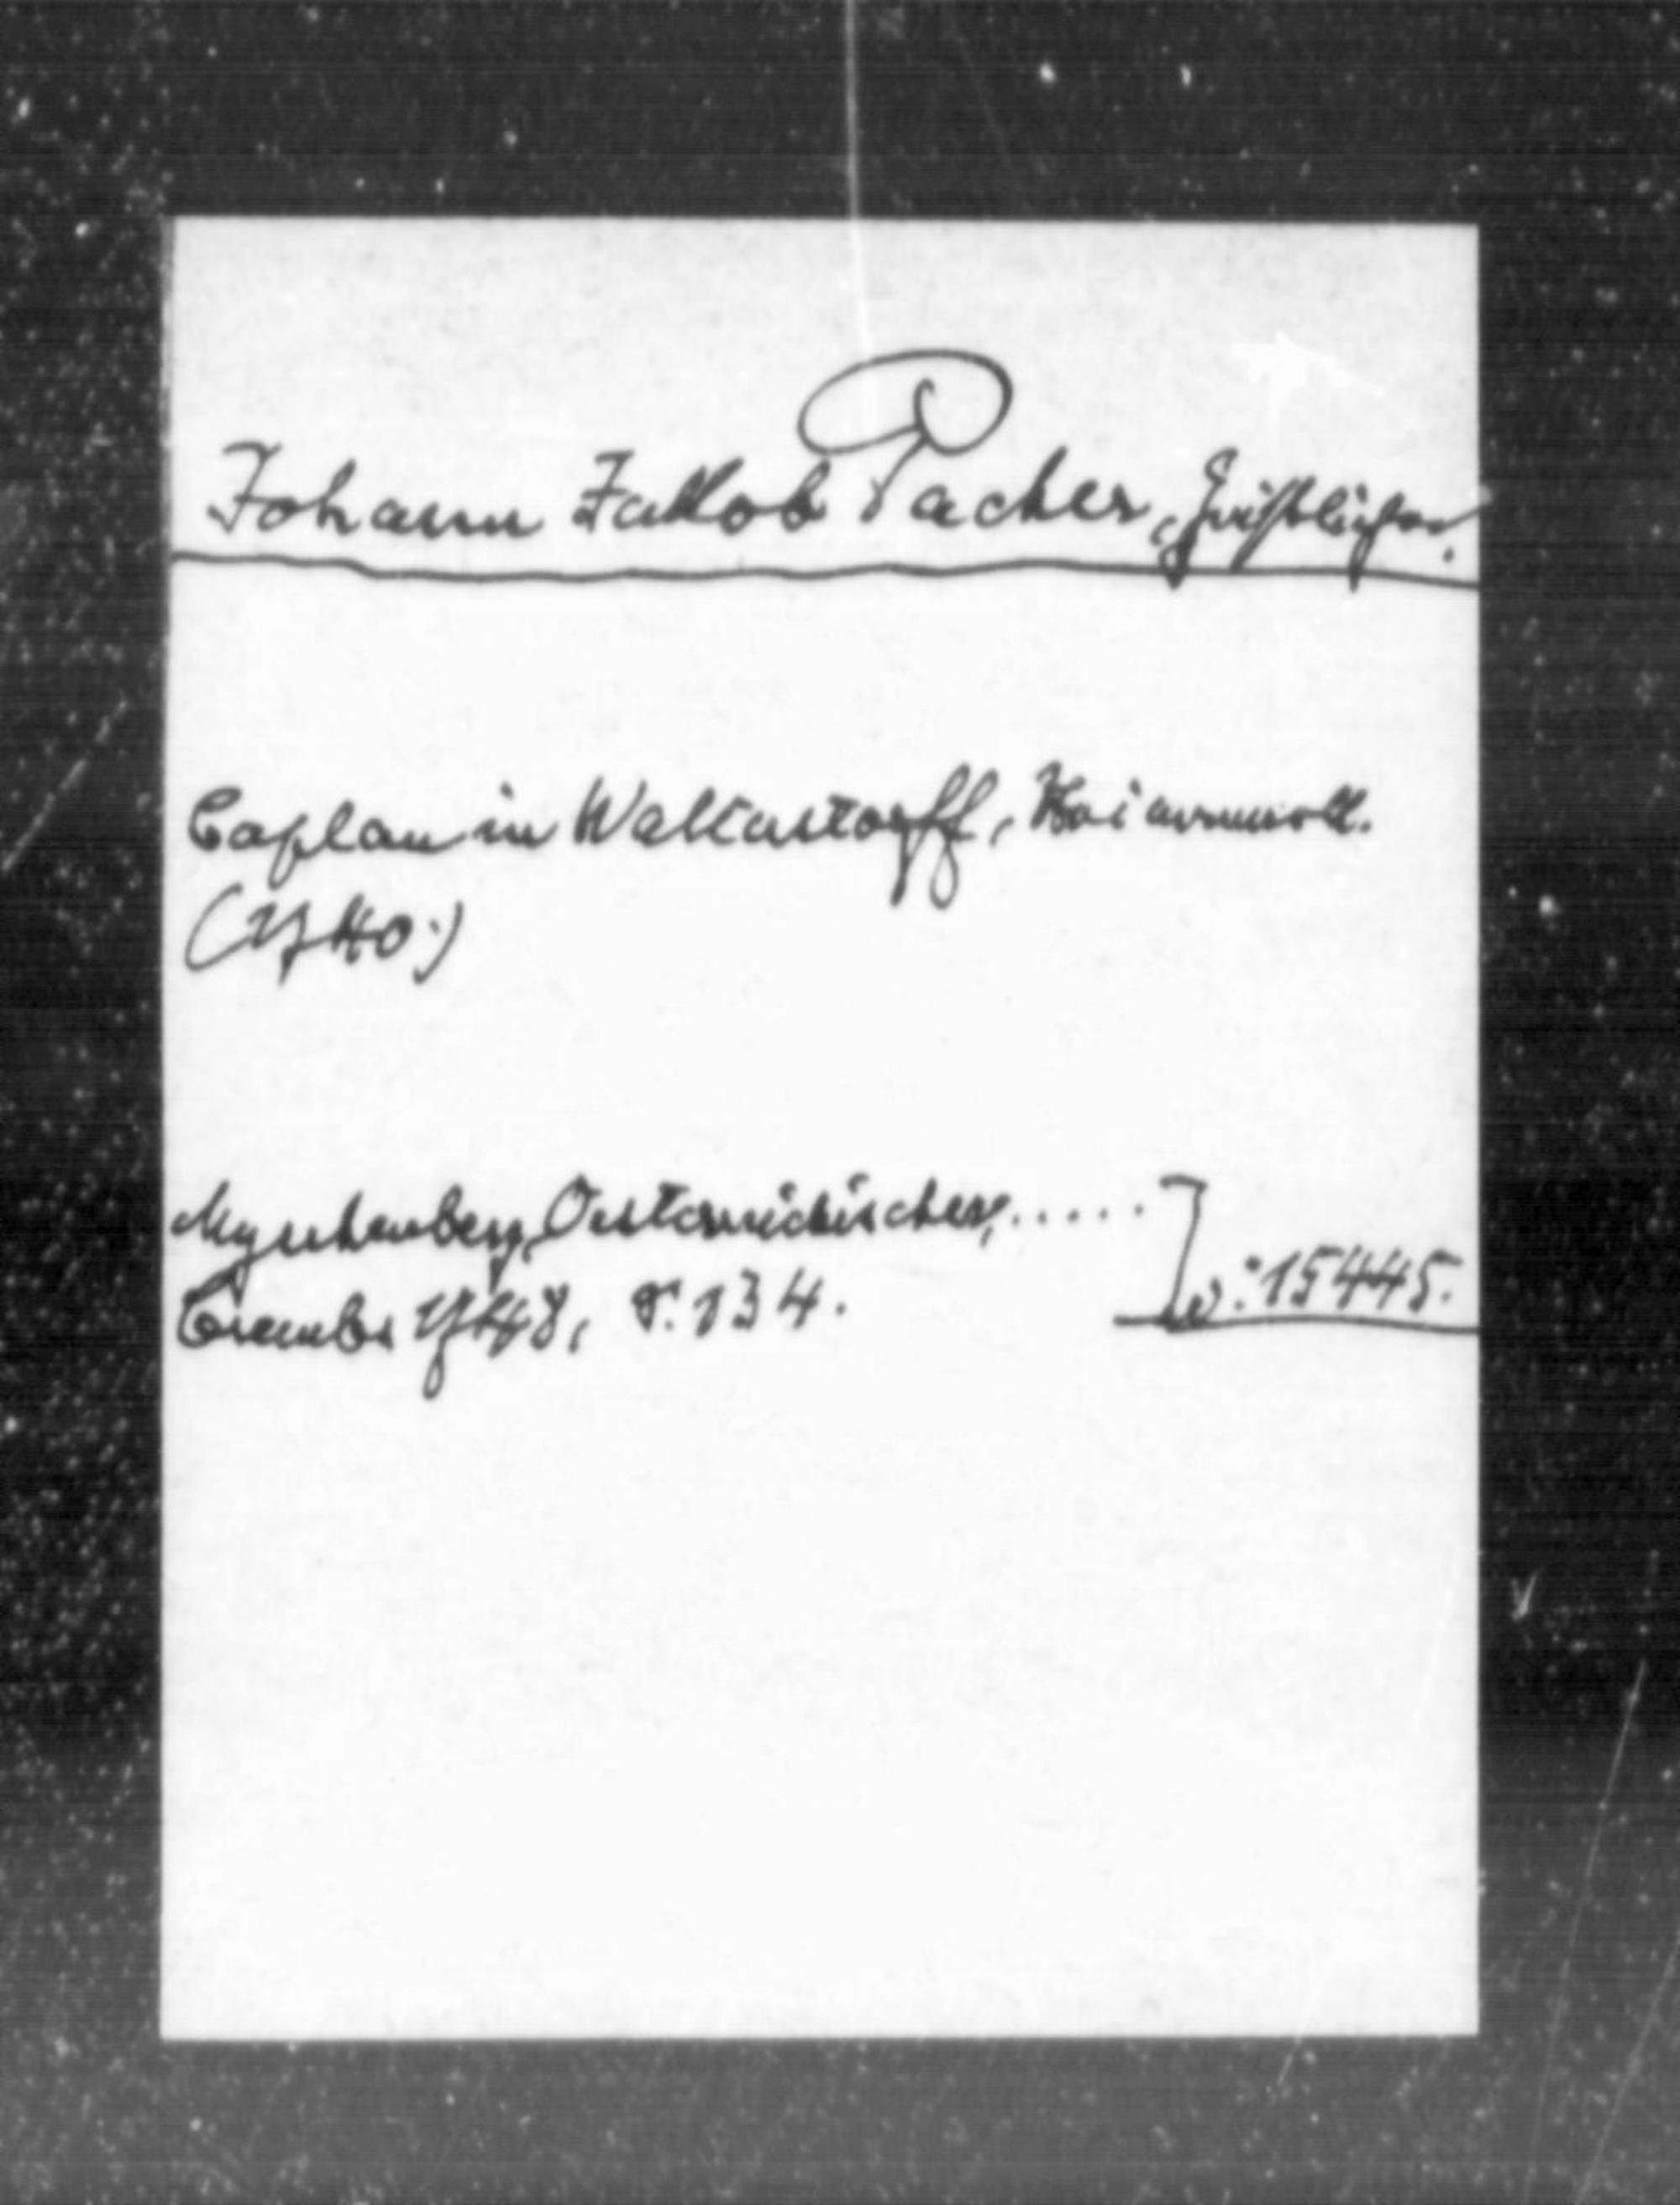 Johann Jakob Pacher, Geistlicher.
Caplan in Walterstorff,
(1740.)
Myrrhenberg, Oesterreichischer, .....
Crembs 1748, S. 134. v: 15445.